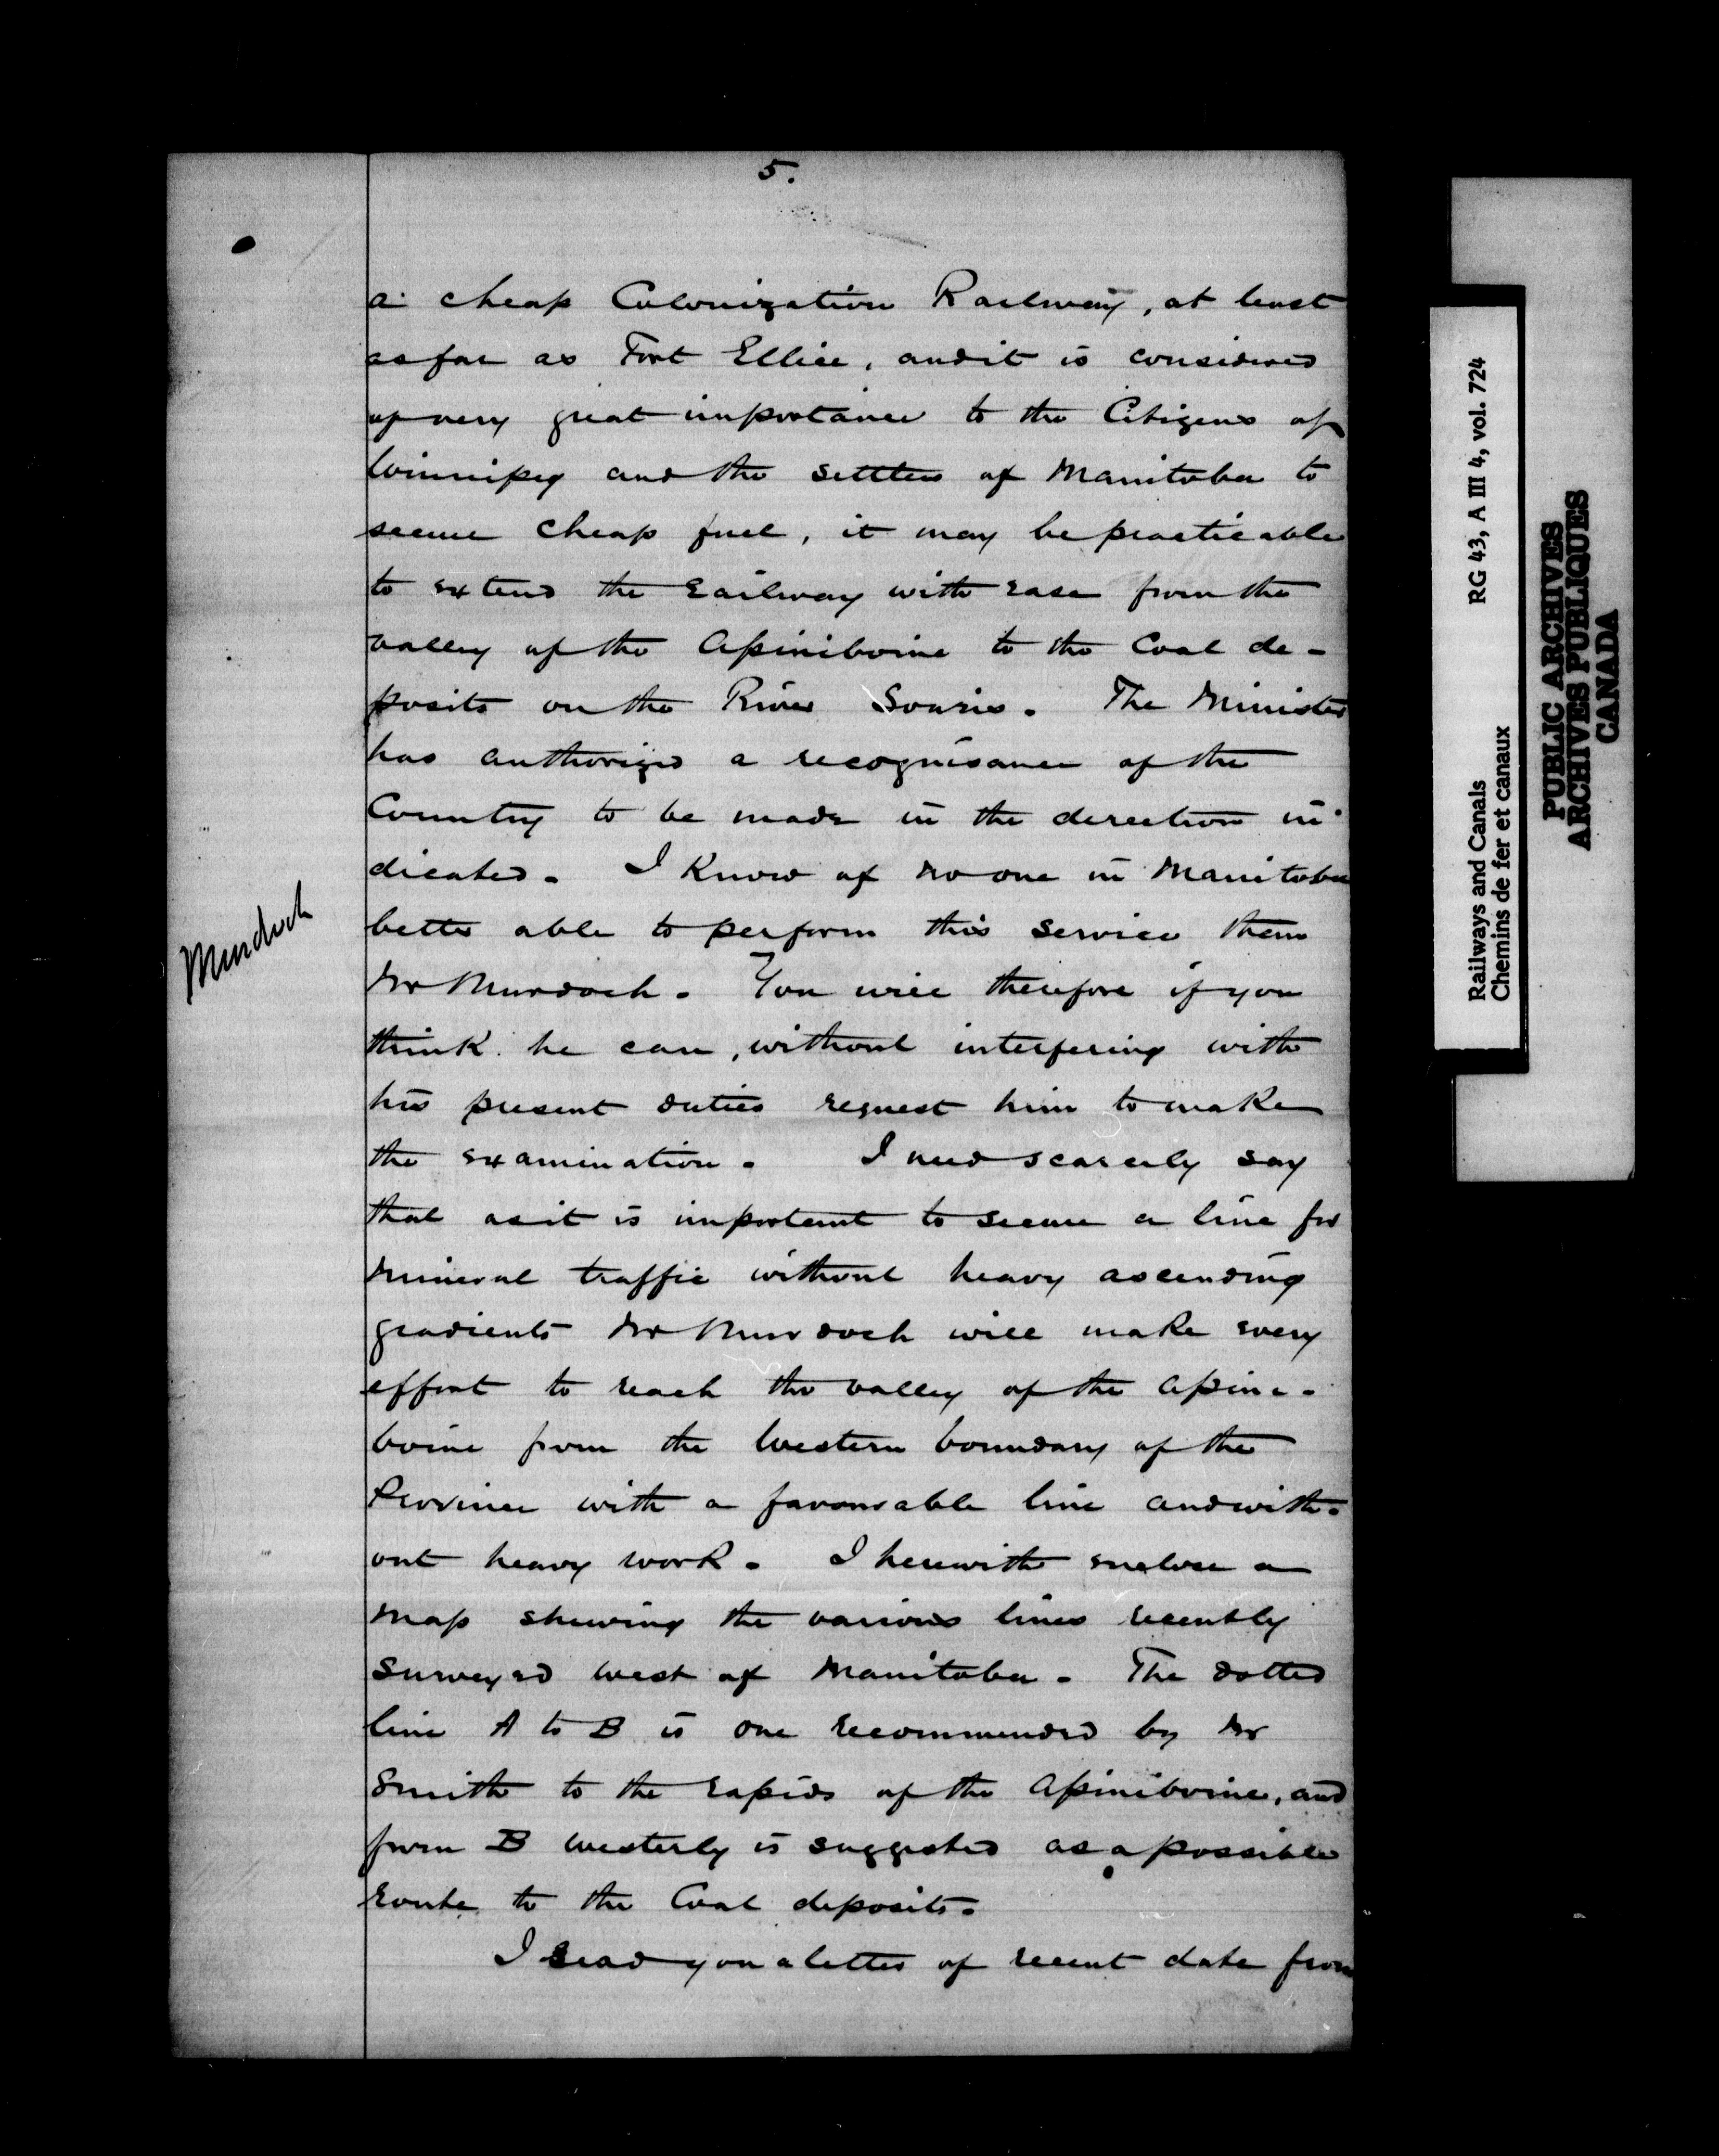 5.
a cheap Colonization Railway, at least
as far as Fort Ellice, and it is considered
of very great importance to the Citizens of
Winnipeg and the settlers of Manitoba to
secure cheap fuel, it may be practicable
to extend the railway with ease from the
valley of the Assiniboine to the Coal de-
posits on the River Souris. The Minister
has authorized a recognisance of the
Country to be made in the direction in-
dicated. I know of no one in Manitoba
better able to perform this service than
Mr Murdoch. You will therefore if you
think he can, without interfering with
his present duties request him to make
the examination. I need scarcely say
that as it is important to secure a line for
mineral traffic without heavy ascending
gradients Mr Murdoch will make every
effort to reach the valley of the Assini-
boine from the Western boundary of the
Province with a favourable line and with-
out heavy work. I herewith enclose a
map shewing the various lines recently
surveyed west of Manitoba. The dotted
line A to B is one recommended by Mr
Smith to the rapids of the Assiniboine, and
from B westerly is suggested as a possible
route to the Coal deposits.
I read you a letter of recent date from
Murdoch
Railways and Canals RG 43, A III 4, vol. 724
Chemins de fer et canaux
PUBLIC ARCHIVES
ARCHIVES PUBLIQUES
CANADA